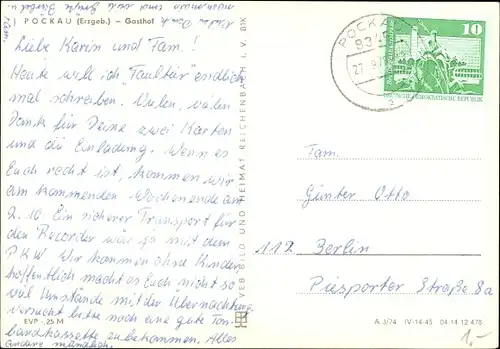 POCKAU (Erzgeb.) — Gasthof
Liebe Karin und Fam.!
Heute will ich "Faultier" endlich
mal schreiben. Vielen, vielen
Dank für Deine zwei Karten
und die Einladung. Wenn es
Euch recht ist, kommen wir
am kommenden Wochenende am
2.10. Ein sicherer Transport für
den Recorder wär ja mit dem
PKW. Wir kommen ohne Kinder,
hoffentlich macht es Euch nicht so
viel Umstände mit der Übernachtung.
Versucht bitte noch eine gute Ton-
bandkassette zu bekommen. Alles
andere mündlich.
EVP -,25 M
VEB BILD UND HEIMAT REICHENBACH I. V. BIX
POCKAU
27.9.
a
10
DEUTSCHE DEMOKRATISCHE REPUBLIK
Fam.
Günter Otto
112 Berlin
Piesporter Straße 8a
A 3/74 IV-14-45 04 14 12 478
1,-